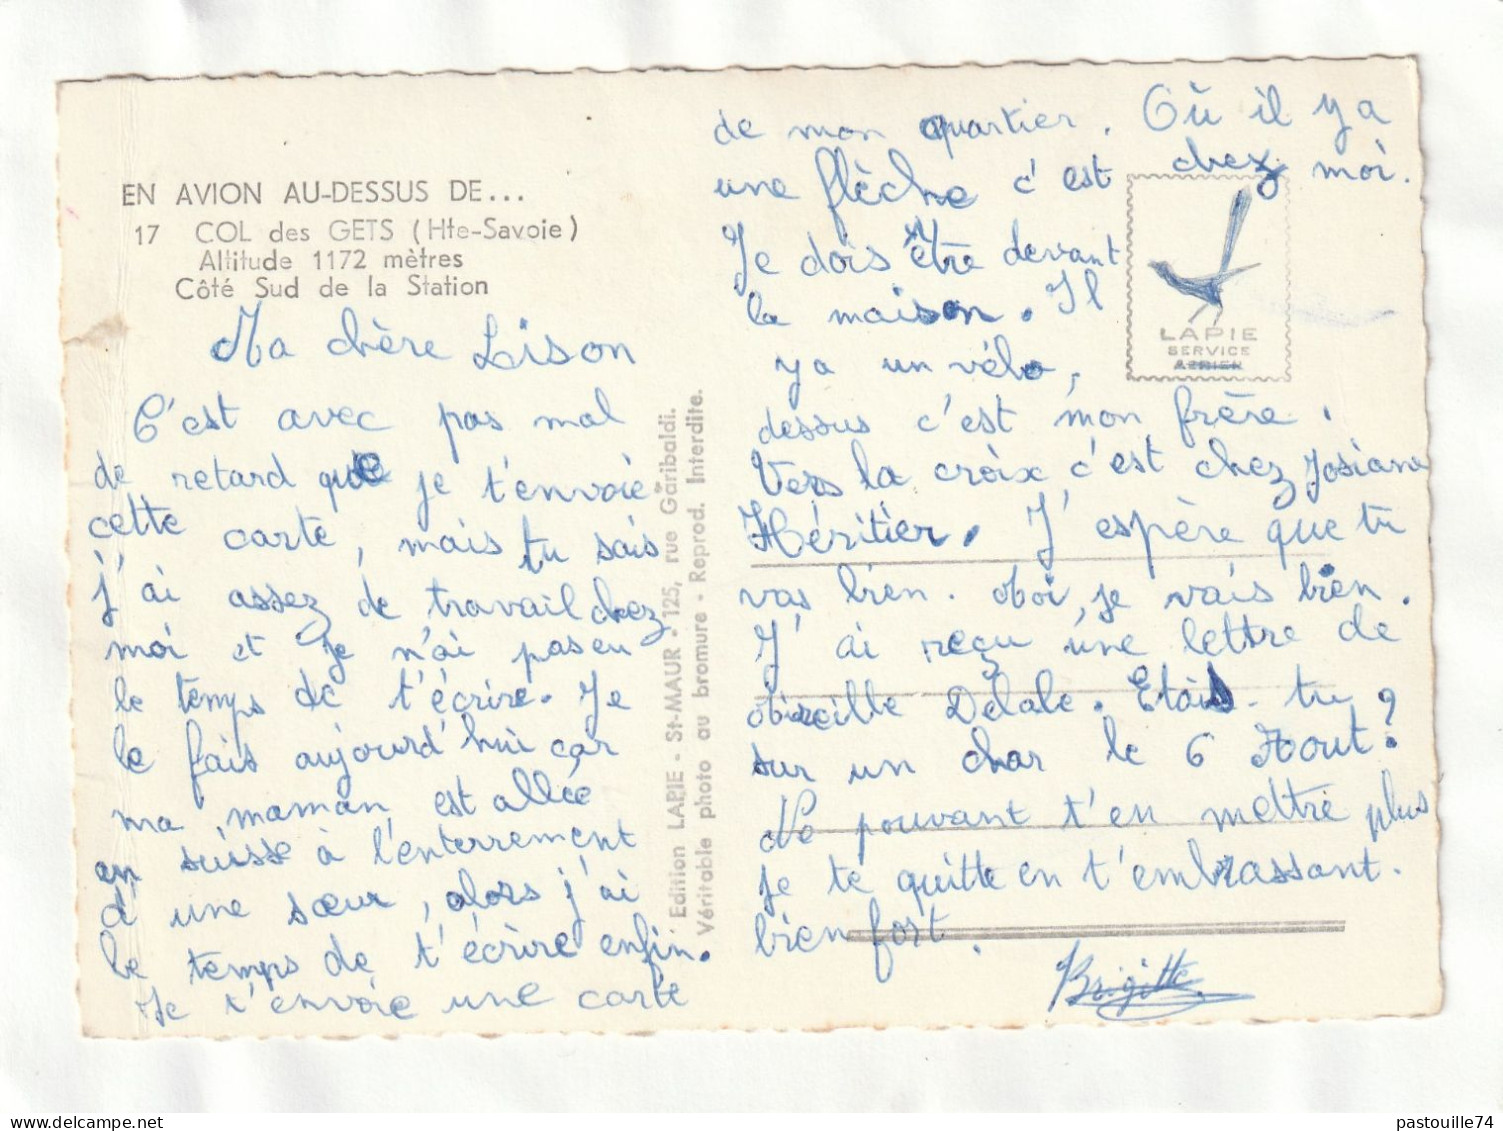 EN AVION AU-DESSUS DE...
17 COL des GETS (Hte-Savoie)
Altitude 1172 mètres
Côté Sud de la Station
Ma chère Lison
C'est avec pas mal
de retard que je t'envoie
cette carte, mais tu sais
j'ai assez de travail chez
moi et je n'ai pas eu
le temps de t'écrire. Je
le fais aujourd'hui car
ma maman est allée
en suisse à l'enterrement
d'une sœur, alors j'ai
le temps de t'écrire enfin.
Je t'envoie une carte
Edition LAPIE - St-MAUR - 125, rue Garibaldi.
Véritable photo au bromure - Reprod. Interdite.
de mon quartier. Où il y a
une flèche c'est chez moi.
Je dois être devant
la maison. Il
y a un vélo,
dessus c'est mon frère.
Vers la croix c'est chez Josiane
Héritier. J'espère que tu
vas bien. Moi, je vais bien.
J'ai reçu une lettre de
Mireille Delale. Etais-tu
sur un char le 6 Aout?
Ne pouvant t'en mettre plus
je te quitte en t'embrassant
bien fort.
Brigitte
LAPIE
SERVICE
AERIEN
pastouille74